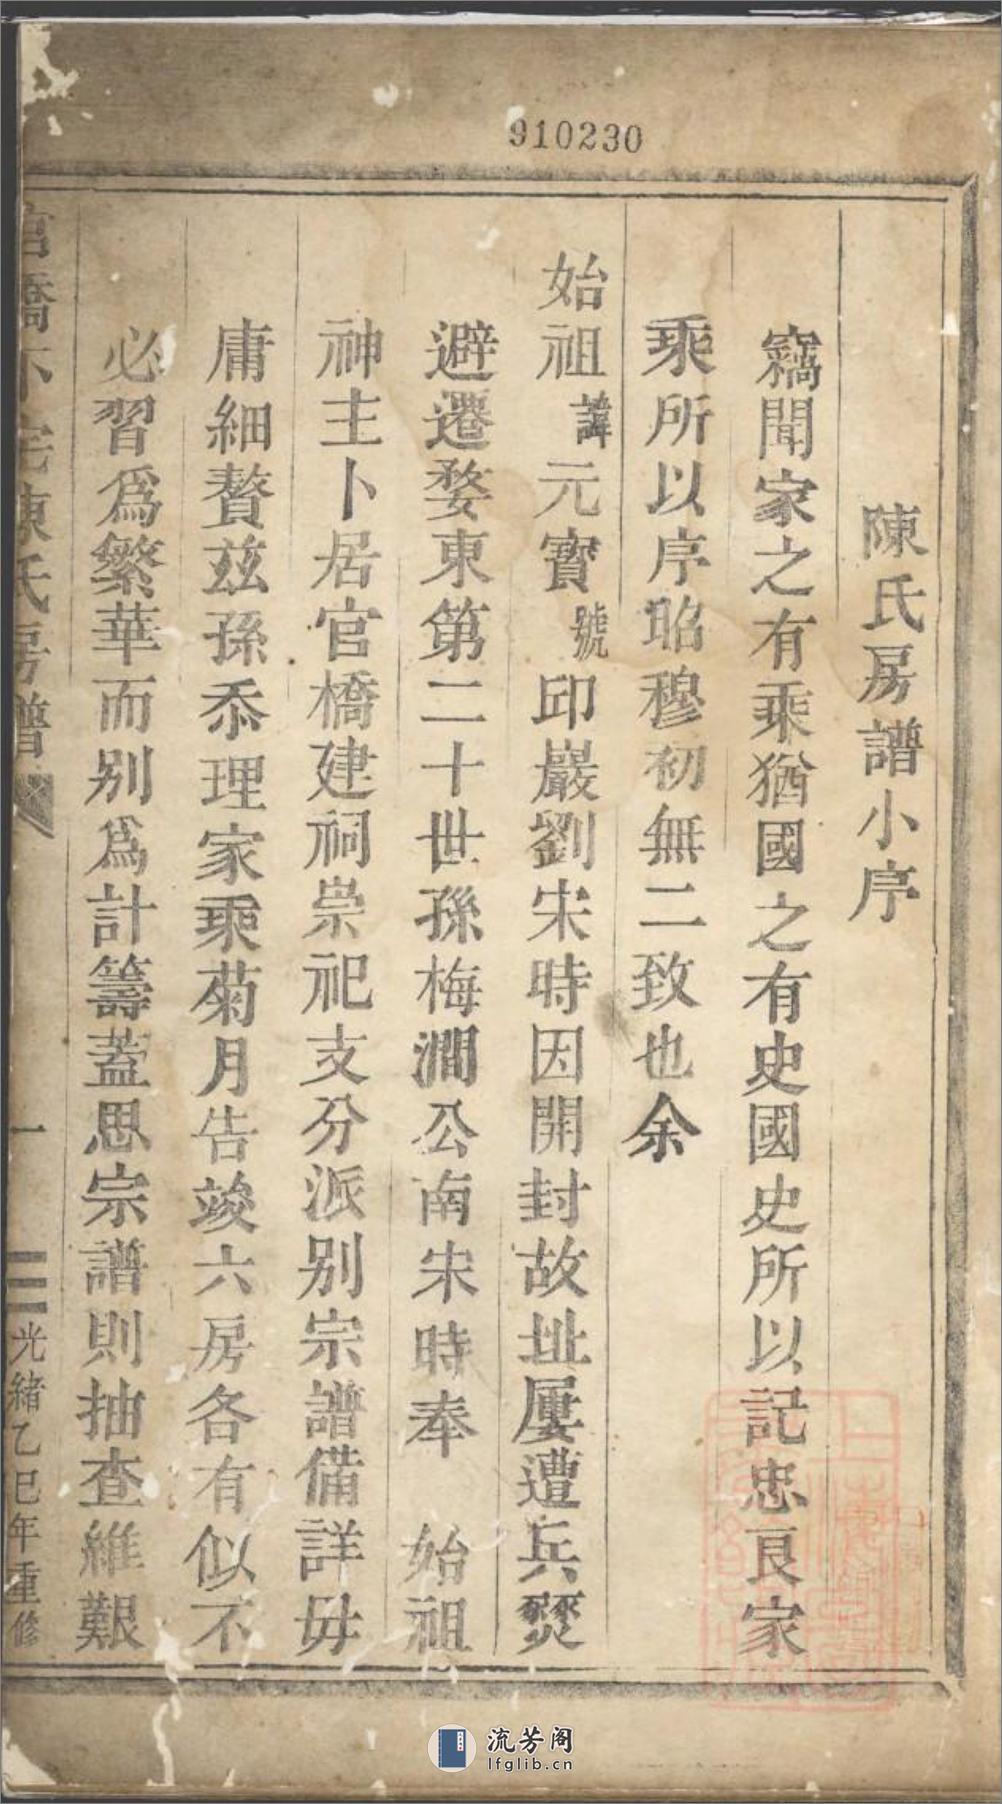 910230
陳氏房譜小序
竊聞家之有乘猶國之有史國史所以記忠良家
乘所以序昭穆初無二致也余
始祖諱元寳號印巖劉宋時因開封故址屢遭兵燹
避遷婺東第二十世孫梅澗公南宋時奉 始祖
神主卜居官橋建祠崇祀支分派別宗譜備詳毋
庸細贅兹孫忝理家乘菊月告竣六房各有似不
必習爲繁華而别爲計籌蓋思宗譜則抽查維艱
官橋下宅陳氏房譜
一
光緒乙巳年重修
流芳阁
lfglib.cn